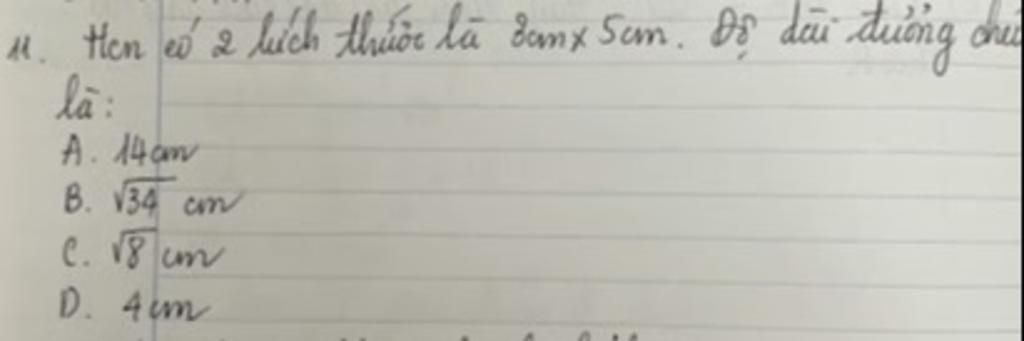 11. Hcn có 2 kích thước là 3cm x 5cm. Độ dài đường
là:
A. 14cm
B. √34 cm
C. √8 cm
D. 4cm